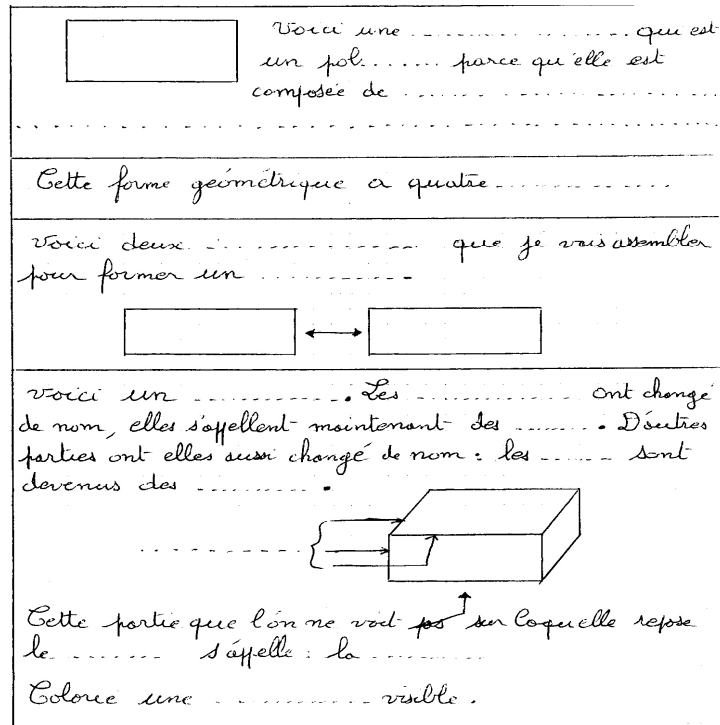 Voici une .................... qui est
un pol....... parce qu'elle est
composée de ....................
........................................
Cette forme géométrique a quatre .............
Voici deux .................. que je vais assembler
pour former un ............
Voici un ............. . Les ............. ont changé
de nom, elles s'appellent maintenant des ........ . D'autres
parties ont elles aussi changé de nom : les ...... sont
devenus des .......... .
..............
Cette partie que l'on ne voit pas sur laquelle repose
le ........ s'appelle : la ..........
Colorie une ............. visible .